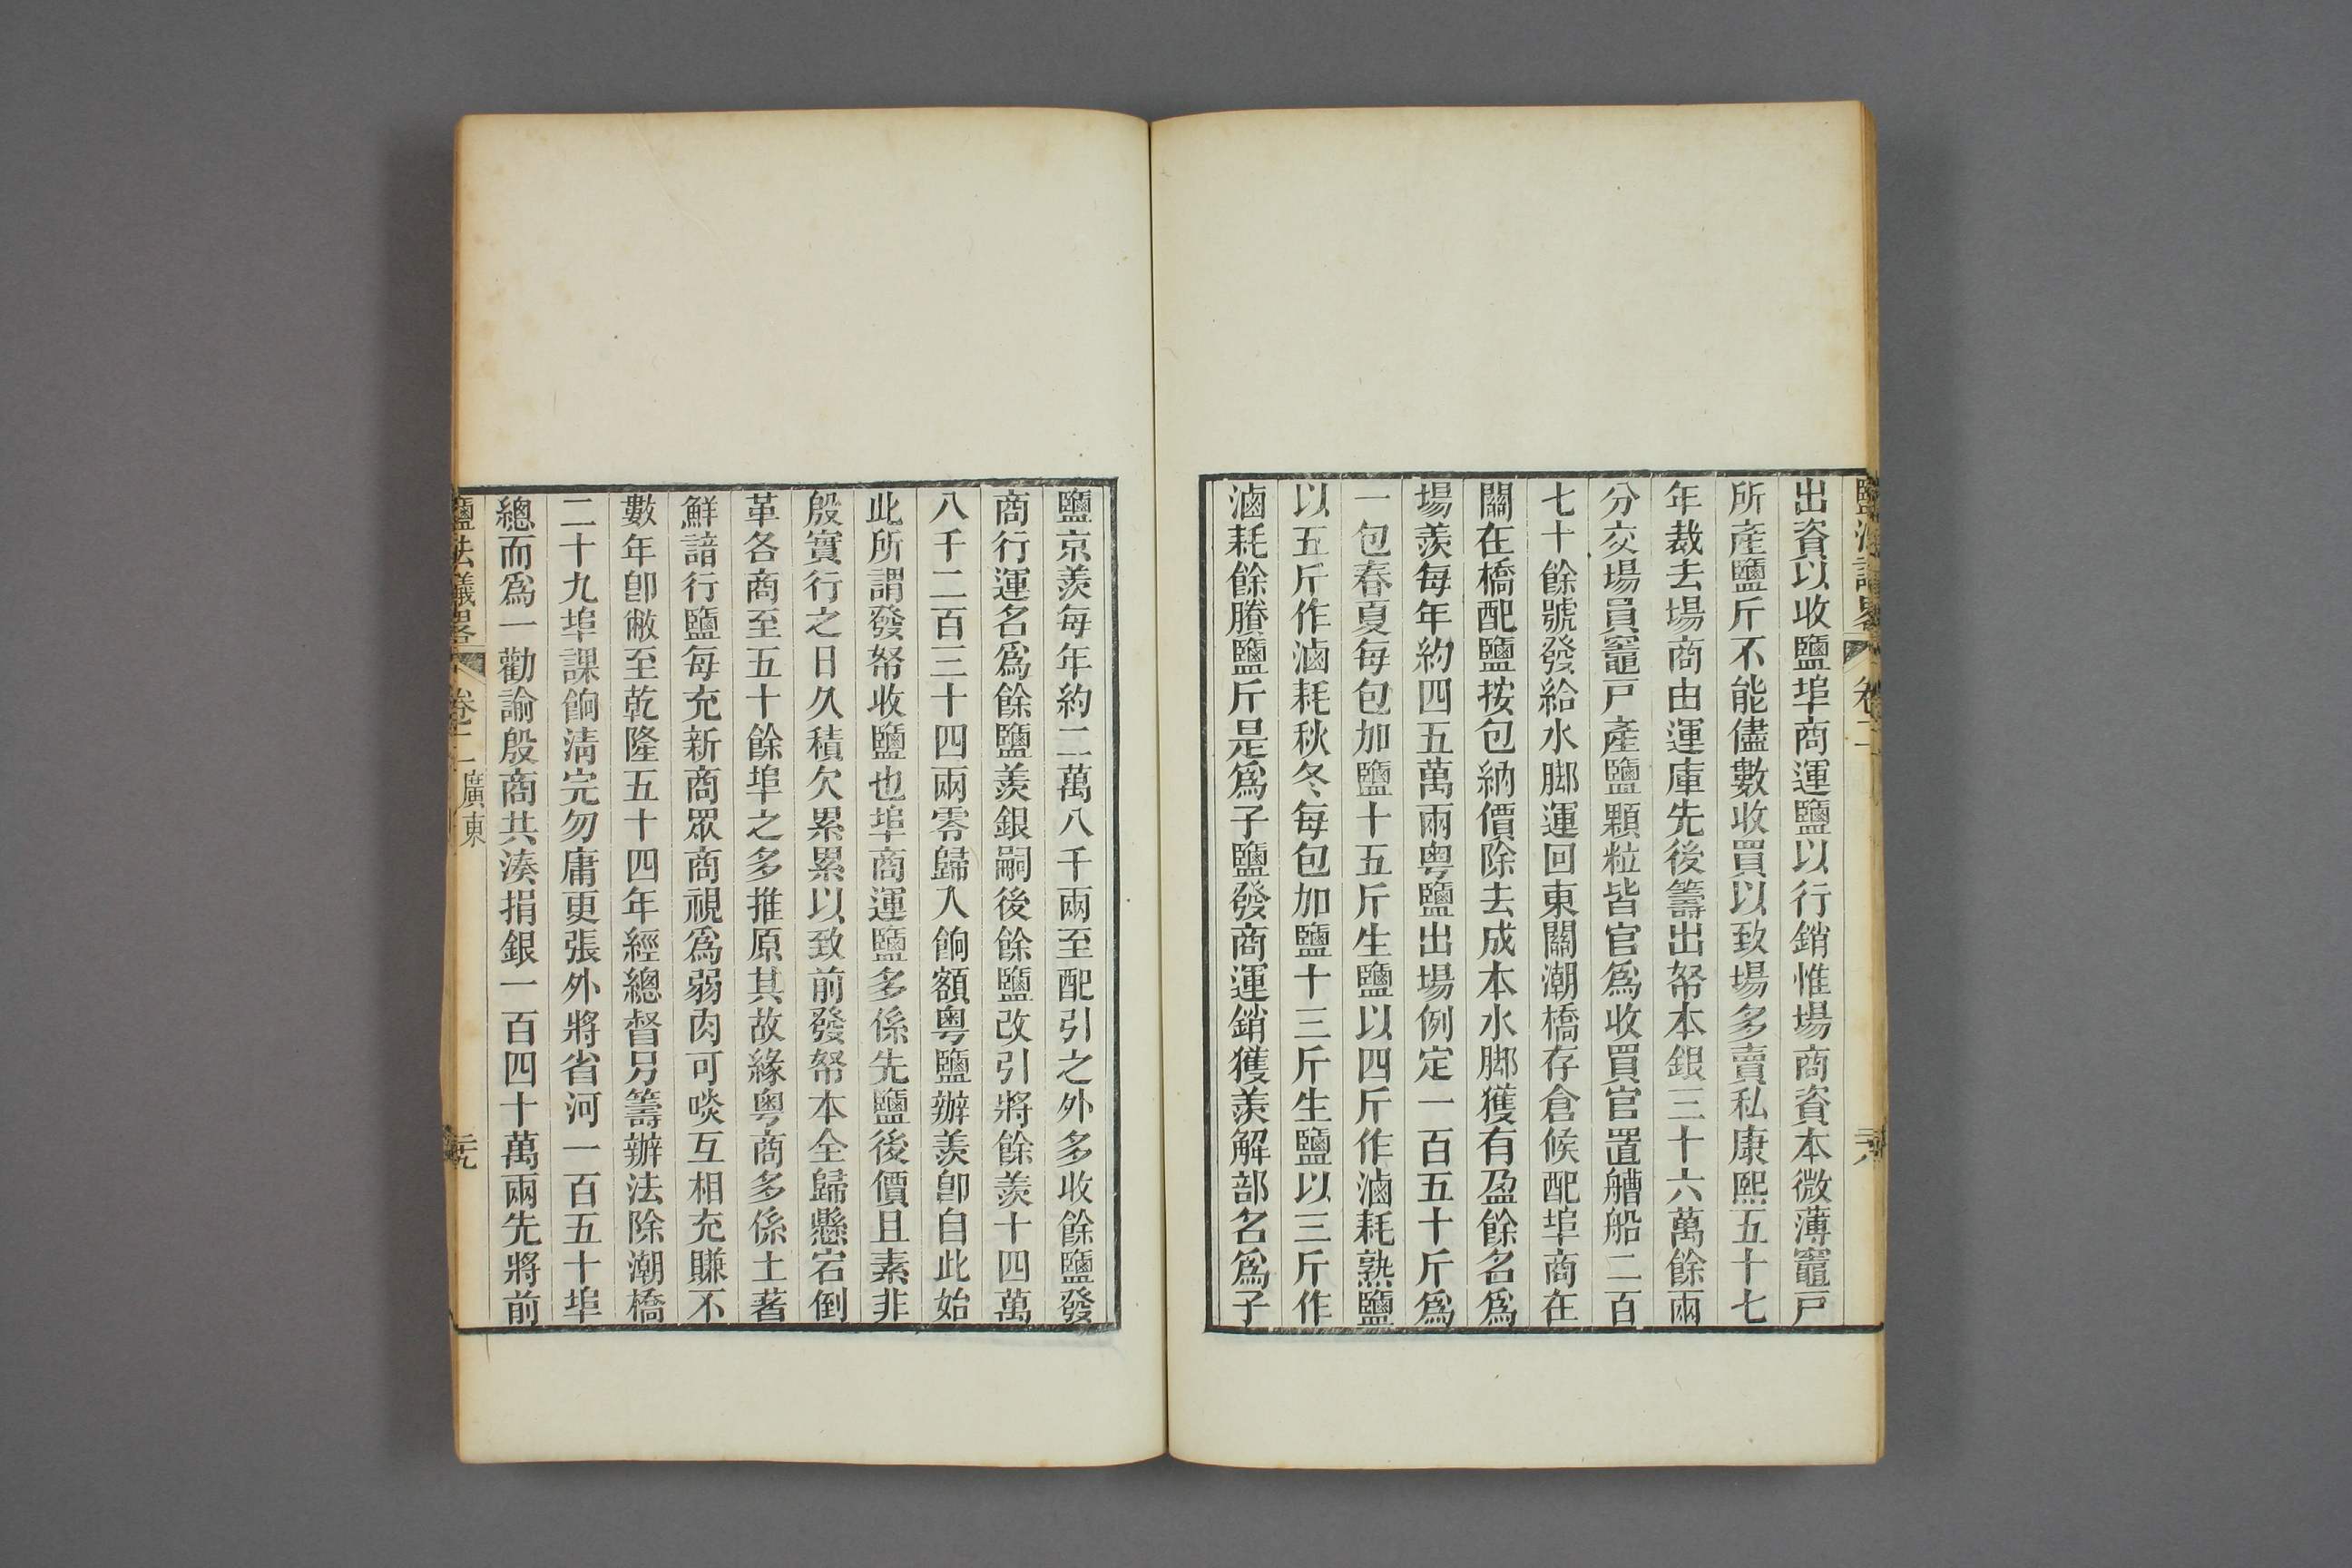 出資以收鹽埠商運鹽以行銷惟場商資本微薄竈戸
所產鹽斤不能儘數收買以致場多賣私康熙五十七
年裁去場商由運庫先後籌出帑本銀三十六萬餘兩
分交場員竈戸產鹽顆粒皆官為收買官置艚船二百
七十餘號發給水脚運回東關潮橋存倉候配埠商在
關在橋配鹽按包納價除去成本水脚獲有盈餘名為
場羨每年約四五萬兩粤鹽出場例定一百五十斤為
一包春夏每包加鹽十五斤生鹽以四斤作滷耗熟鹽
以五斤作滷耗秋冬每包加鹽十三斤生鹽以三斤作
滷耗餘賸鹽斤是為子鹽發商運銷獲羨解部名為子
鹽京羨每年約二萬八千兩至配引之外多收餘鹽發
商行運名為餘鹽羨銀嗣後餘鹽改引將餘羨十四萬
八千二百三十四兩零歸入餉額粤鹽辦羨卽自此始
此所謂發帑收鹽也埠商運鹽多係先鹽後價且素非
殷實行之日久積欠累累以致前發帑本全歸懸宕倒
革各商至五十餘埠之多推原其故緣粤商多係土著
鮮諳行鹽每充新商眾商視為弱肉可啖互相充賺不
數年卽敝至乾隆五十四年經總督另籌辦法除潮橋
二十九埠課餉淸完勿庸更張外將省河一百五十埠
總而為一勸諭殷商共湊捐銀一百四十萬兩先將前
鹽法議畧 卷二 廣東 三十九